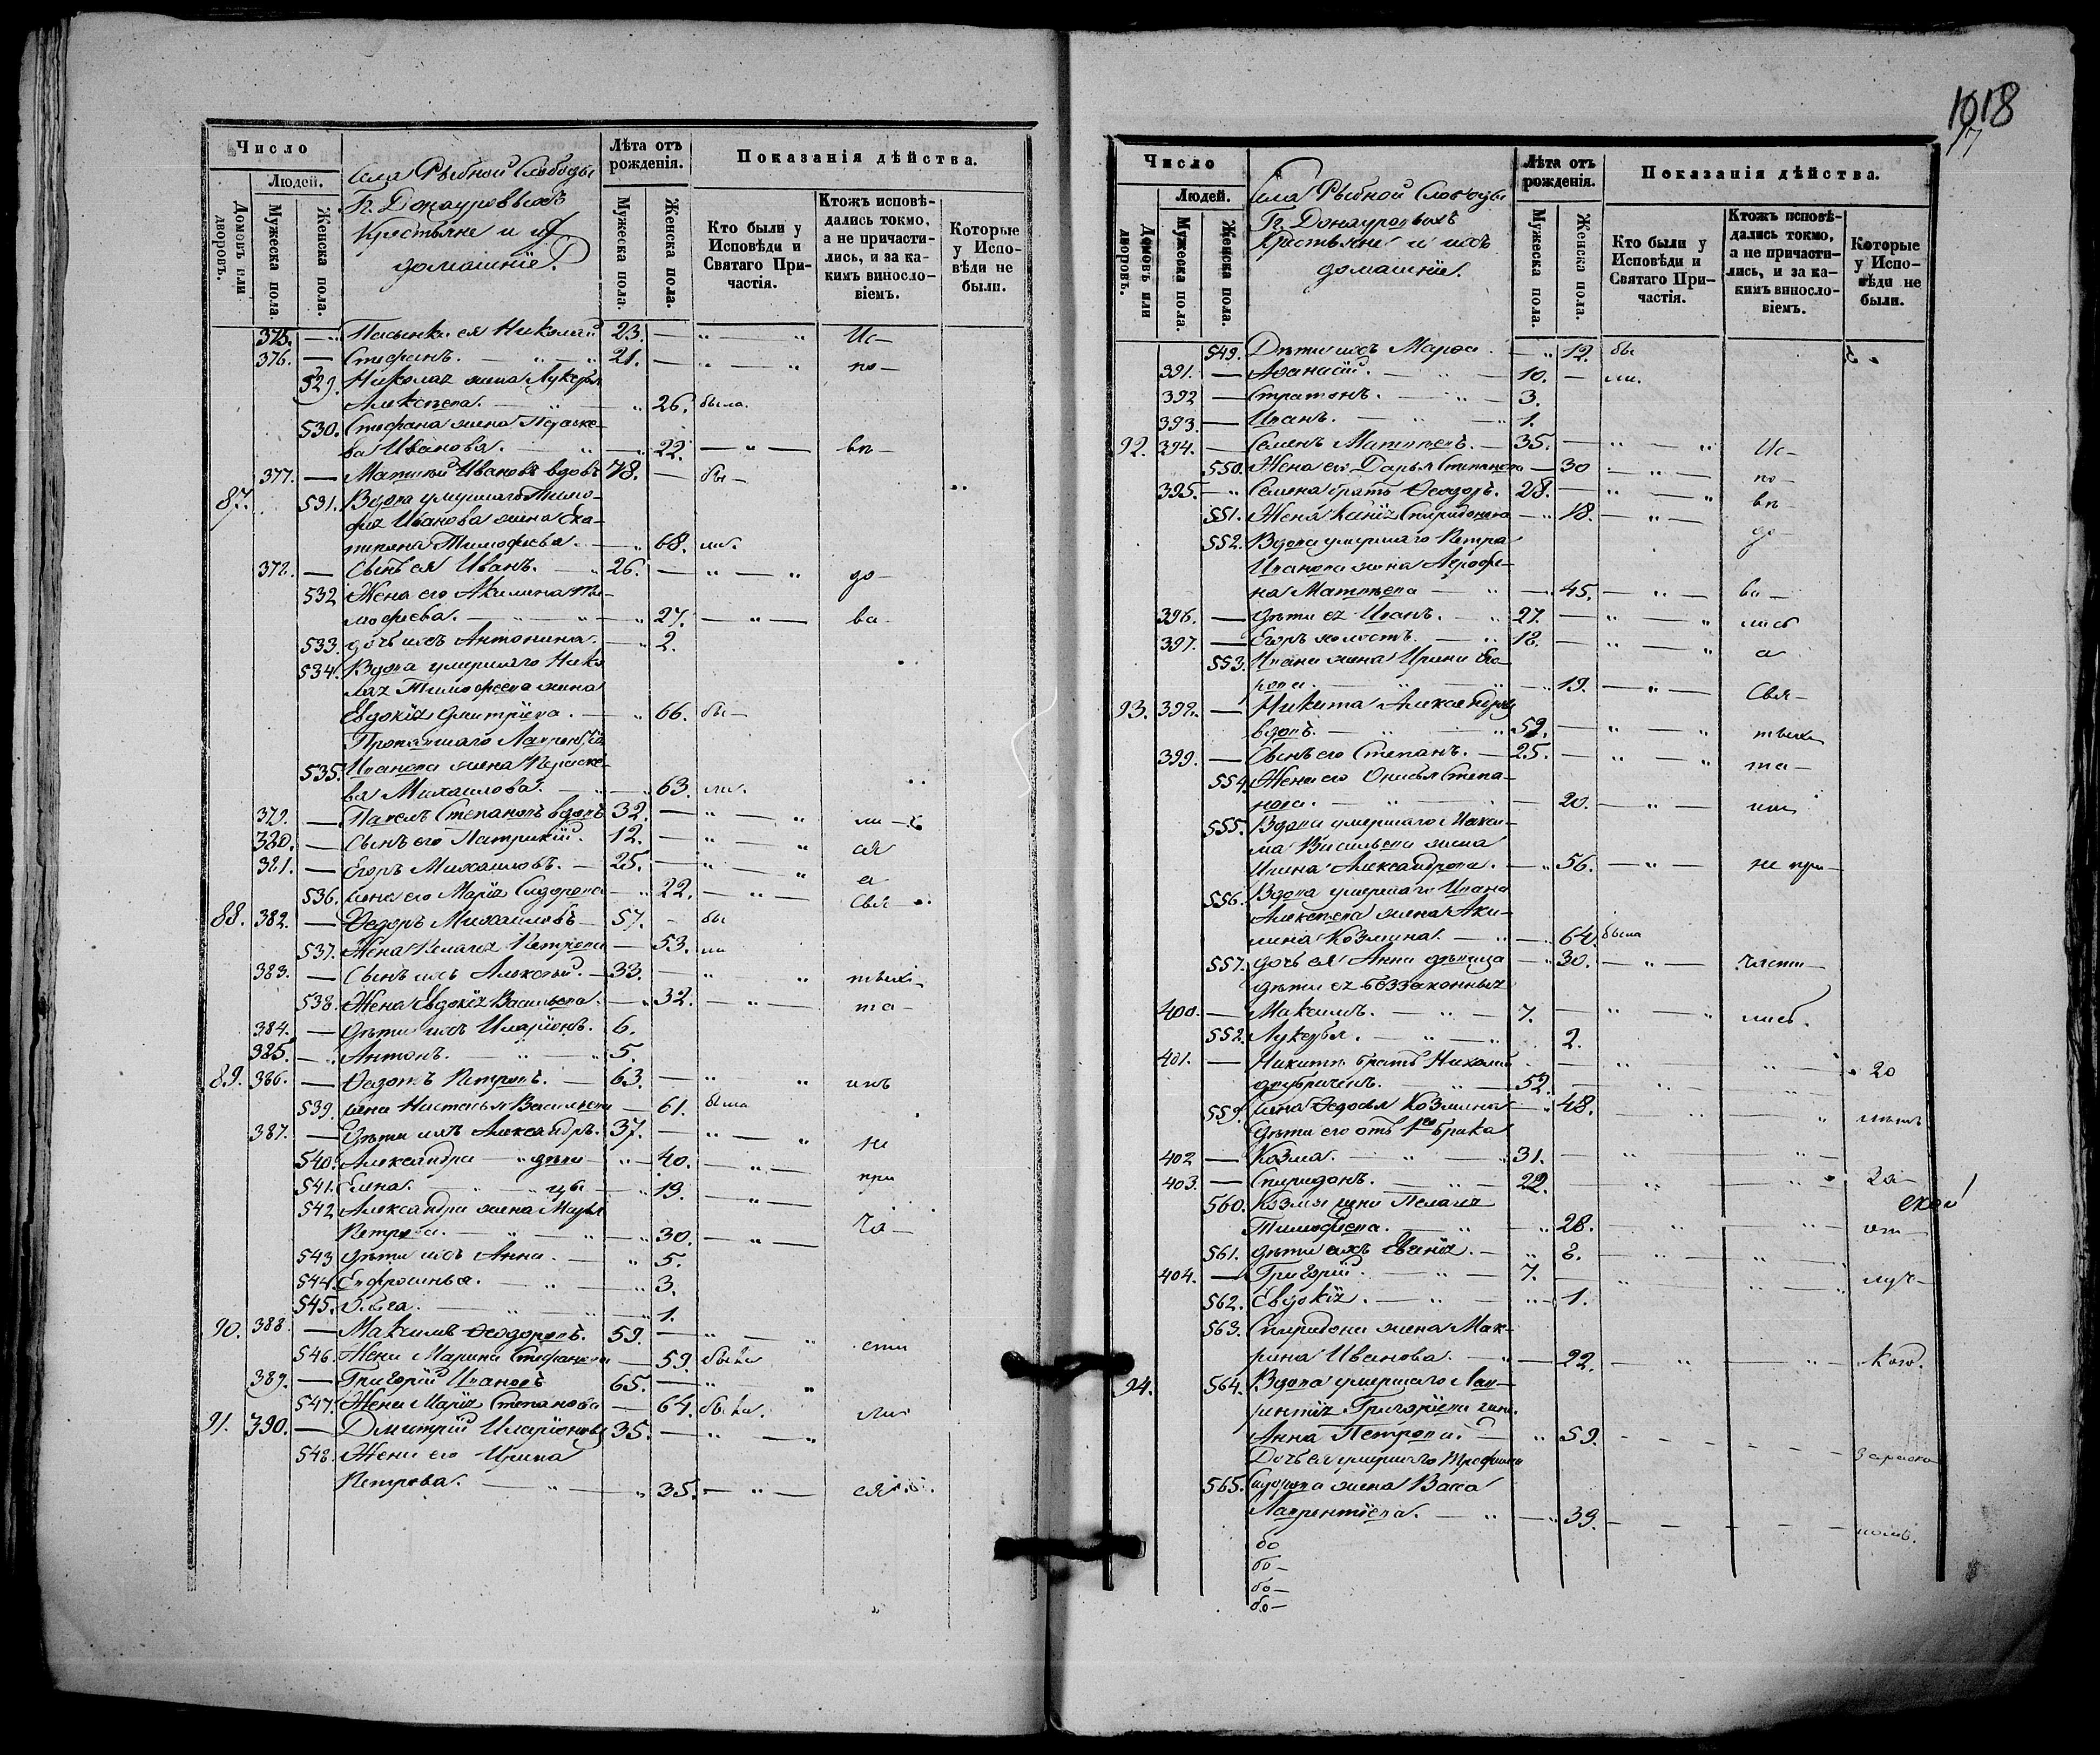 1018
17
Число
Людей.
Домовъ или дворовъ.
Мужеска пола.
Женска пола.
Села Рыбной Слободы
Гг. Донауровыхъ
Крестьяне и ихъ
домашніе.
Лѣта отъ рожденія.
Мужеска пола.
Женска пола.
Показанія дѣйства.
Кто были у Исповѣди и Святаго Причастія.
Ктожъ исповѣдались токмо, а не причастились, и за какимъ винословіемъ.
Которые у Исповѣди не были.
375. Пасынки ея Николай 23. Ис-
376. Стефанъ. 21. по-
529. Николая жена Лукерья
Алексѣева. 26. была.
530. Стефана жена Параске-
ва Иванова. 22. вѣ-
377. Матвей Ивановъ вдовъ 48. бы-
87. 531. Вдова умершаго Тимо-
фея Иванова жена Ека-
терина Тимофеева. 68. ли.
378. Сынъ ея Иванъ. 26. до-
532 Жена его Акилина Ти-
мофеева. 27. ва-
533. дочь ихъ Антонина. 2.
534. Вдова умершаго Нико
лая Тимофеева жена
Евдокія Дмитріева. 66. бы-
Пропавшаго Лаврентія
535. Иванова жена Параске-
ва Михаилова. 63. ли.
379. Павелъ Степановъ вдовъ 32. ли-
380. Сынъ его Патрикій. 12. ся
381. Егоръ Михаиловъ. 25. а
536. жена его Марія Сидорова 22. Свя-
88. 382. Ѳедоръ Михаиловъ 57. бы
537. Жена Пелагея Петрова 53. ли
383. Сынъ ихъ Алексѣй. 33. тыхъ
538. Жена Евдокія Васильева. 32. та-
384. Дѣти ихъ Иларіонъ. 6.
385. Антонъ. 5.
89. 386. Ѳедотъ Петровъ. 63. инъ
539. жена Настасья Васильева 61. была
387. Дѣти ихъ Александръ. 37. не
540. Александра дѣви 40. при
541. Елена. цы 19.
542 Александра жена Марья
Петрова. 30. ча-
543 Дѣти ихъ Анна. 5.
544. Евфросинья. 3.
545. Ольга. 1.
90. 388. Максимъ Ѳеодоровъ. 59. сти
546. Жена Марина Стефанова 59. была
389. Григорій Ивановъ 65.
547. Жена Марія Степанова 64. была. ли
91. 390. Дмитрій Иларіоновъ 35.
548. Жена его Ирина
Петрова. 35. ся
Число
Людей.
Домовъ или дворовъ.
Мужеска пола.
Женска пола.
Села Рыбной Слободы
Гг. Донауровыхъ
Крестьяне и ихъ
домашніе.
Лѣта отъ рожденія.
Мужеска пола.
Женска пола.
Показанія дѣйства.
Кто были у Исповѣди и Святаго Причастія.
Ктожъ исповѣдались токмо, а не причастились, и за какимъ винословіемъ.
Которые у Исповѣди не были.
549. Дѣти ихъ Марѳа. 12. бы
391. Аѳанасій. 10. ли.
392 Стратонъ. 3.
393. Иванъ. 1.
92. 394. Семенъ Матвѣевъ. 35. Ис-
550. Жена его Дарья Степанова 30 по-
395. Семена братъ Ѳеодоръ. 28. вѣ-
551. Жена Спиридонова 18. до-
552. Вдова умершаго Петра
Иванова жена Агрофе-
на Матвѣева 45. ва-
396. Дѣти ея Иванъ. 27. лись
397. Егоръ холостъ. 18. а
553. Ивана жена Ирина Его-
рова. 19. Свя-
93. 398. Никита Александровъ
вдовъ. 59. тыхъ
399. Сынъ его Степанъ. 25. та-
554. Жена его Онисья Степа-
нова. 20. инъ
555. Вдова умершаго Макси-
ма Васильева жена
Ирина Александрова. 56. не при-
556. Вдова умершаго Ивана
Алексѣева жена Аки-
лина Козмина. 64. была
557. дочь ея Анна дѣвица 30. части-
дѣти ея беззаконныя
400. Максимъ. 7. лись.
558. Лукерья. 2.
401. Никиты братъ Николай
52. 20
559. жена Ѳедосья Козмина 48. лѣтъ
Дѣти его отъ 1го брака
402 Козма. 31.
403. Спиридонъ. 22. За-
560. Козмы жена Пелагея
Тимофеева. 28. от-
561. дѣти ихъ Евгенія. 8.
404. Григорій. 7. луч-
562. Евдокія. 1.
563. Спиридона жена Мак-
рина Иванова. 22. кою.
94. 564. Вдова умершаго Лав-
рентія Григоріева жена
Анна Петрова. 59.
Дочь ея умершаго Трофима
565. Сидорова жена Васса
Лаврентіева. 39.
бо
бо-
бо-
бо-